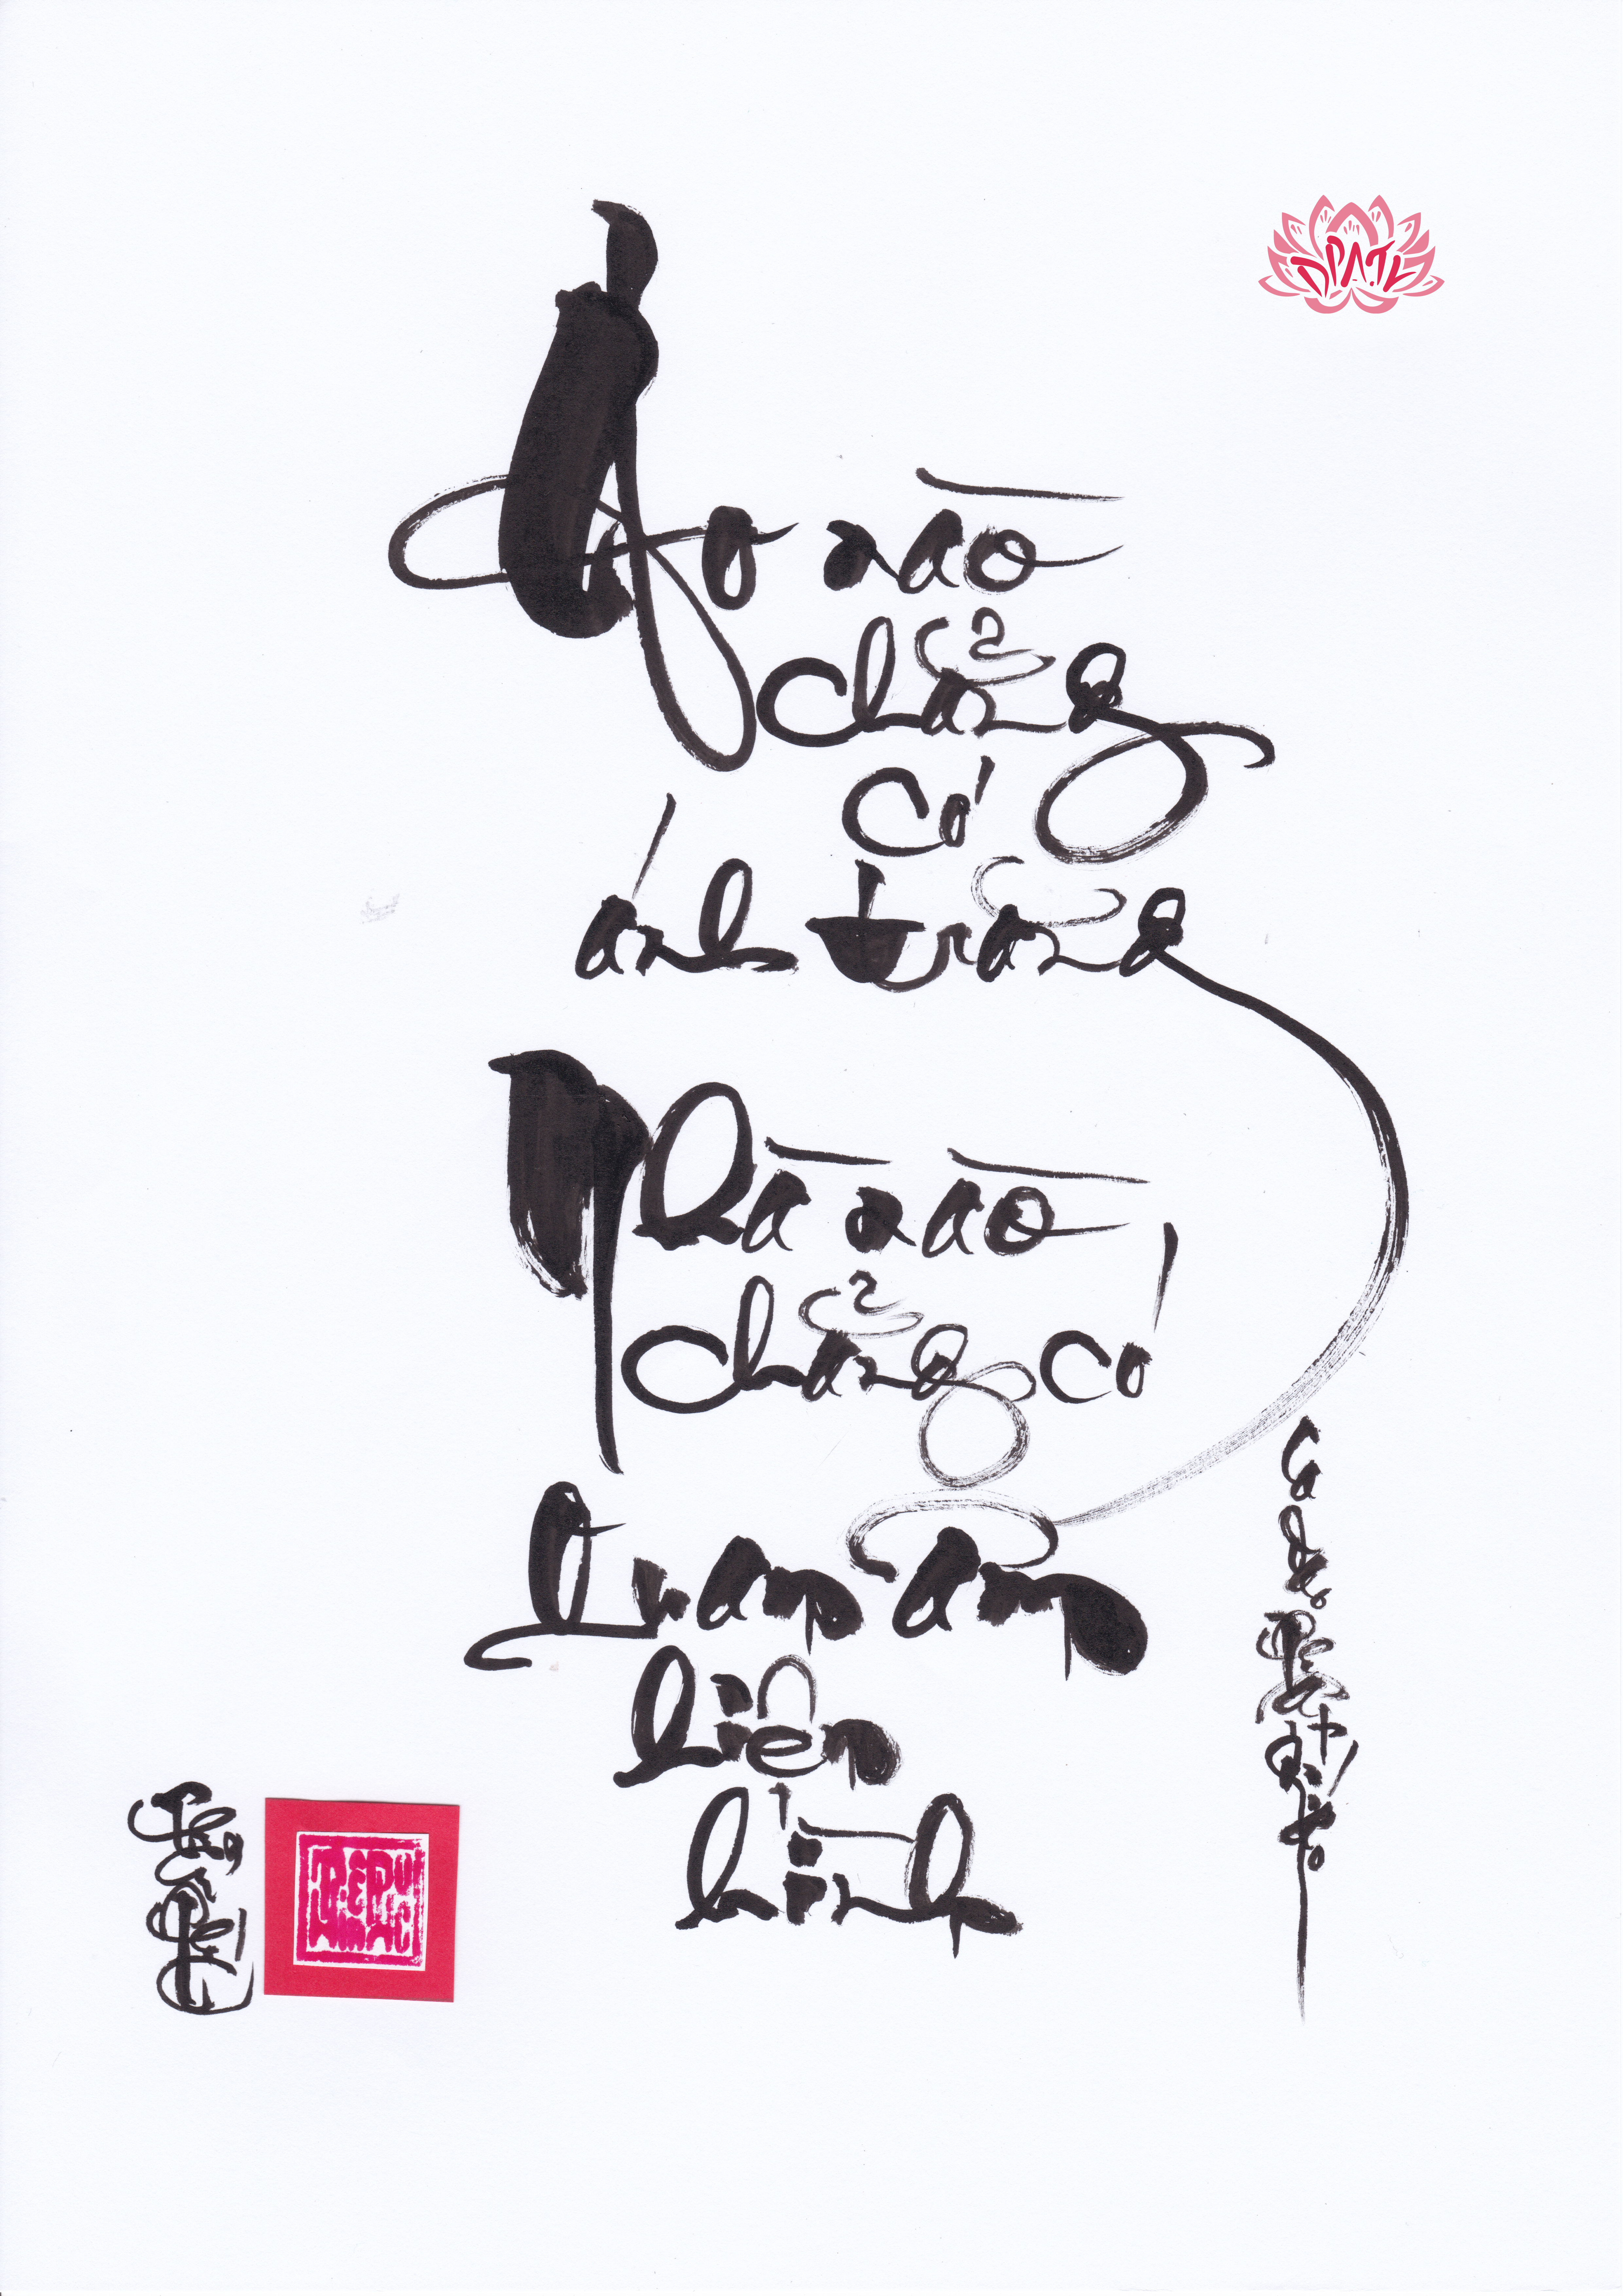 Ao nào
chẳng
có
ánh trăng
Nhà nào
chẳng có
Quan âm
hiện
hình
Ca dao
DPATV